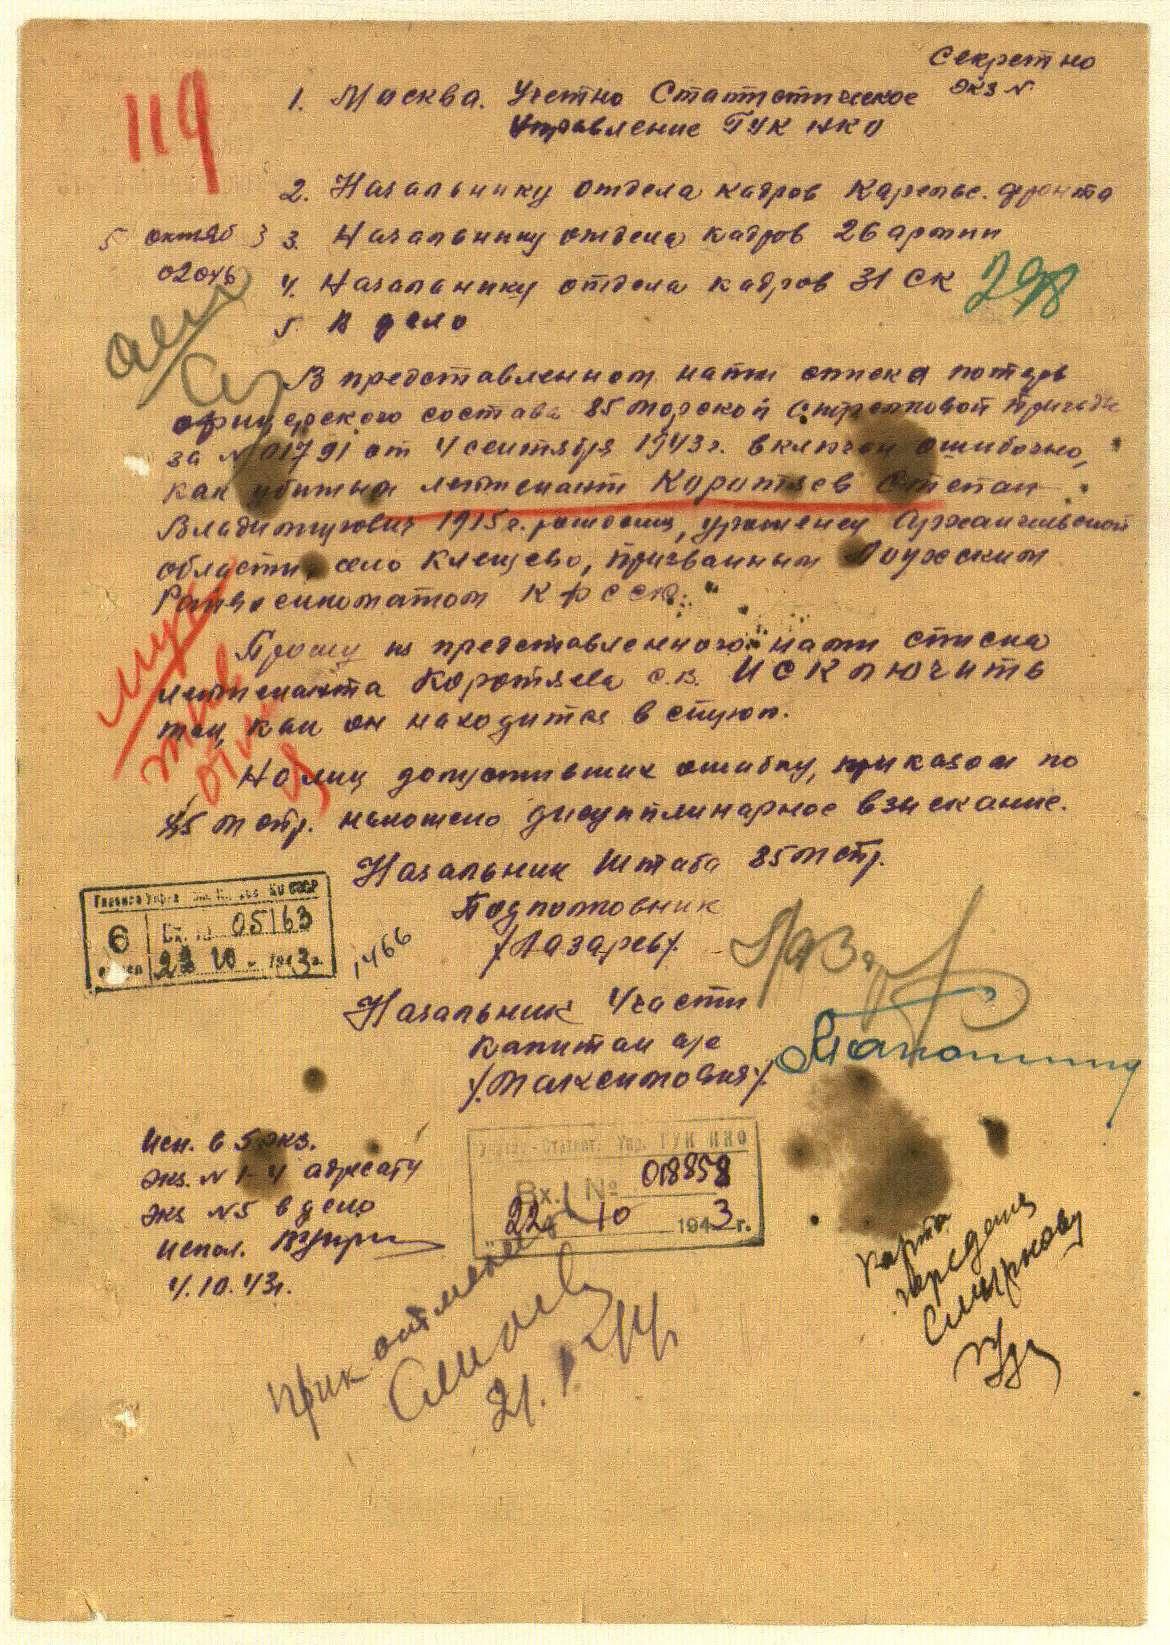 Секретно
Экз №
119
1. Москва. Учетно Статистическое
Управление ГУК НКО
2. Начальнику отдела кадров Карельс. фронта
5 октяб 3
3. Начальнику отдела кадров 26 армии
02046
4. Начальнику отдела кадров 31 СК
298
5 В дело
В представленном нами списка потерь
офицерского состава 85 морской стрелковой бригады
за № 01791 от 4 сентября 1943 г. включен ошибочно,
как убитый лейтенант Коротяев Степан
Владимирович 1915 г. рождения, уроженец Архангельской
области, село Клещево, призванным Лоухским
Райвоенкоматом КФССР.
Прошу из представленного нами списка
лейтенанта Коротяева С.В. ИСКЛЮЧИТЬ
так, как он находится в
На лиц допустивших ошибку, приказом по
85 мстр. наложено дисциплинарное взыскание.
Начальник Штаба 85 мстр.
Подполковник
/Лазарев/.
Начальник 4 части
Капитан а/с
/Максимовия/
1466
Главное Упра КО СССР
6
Вх. № 05163
23 10 - 1943 г.
Исп. в 5 экз.
Экз. № 1-4 адресату
Экз №5 в дело
Испол.
4.10.43г.
Учетно-Статист. Упр. ГУК НКО
Вх. № 018858
"22" 10 1943 г.
прик отменен
Карта
передана
Смирнову